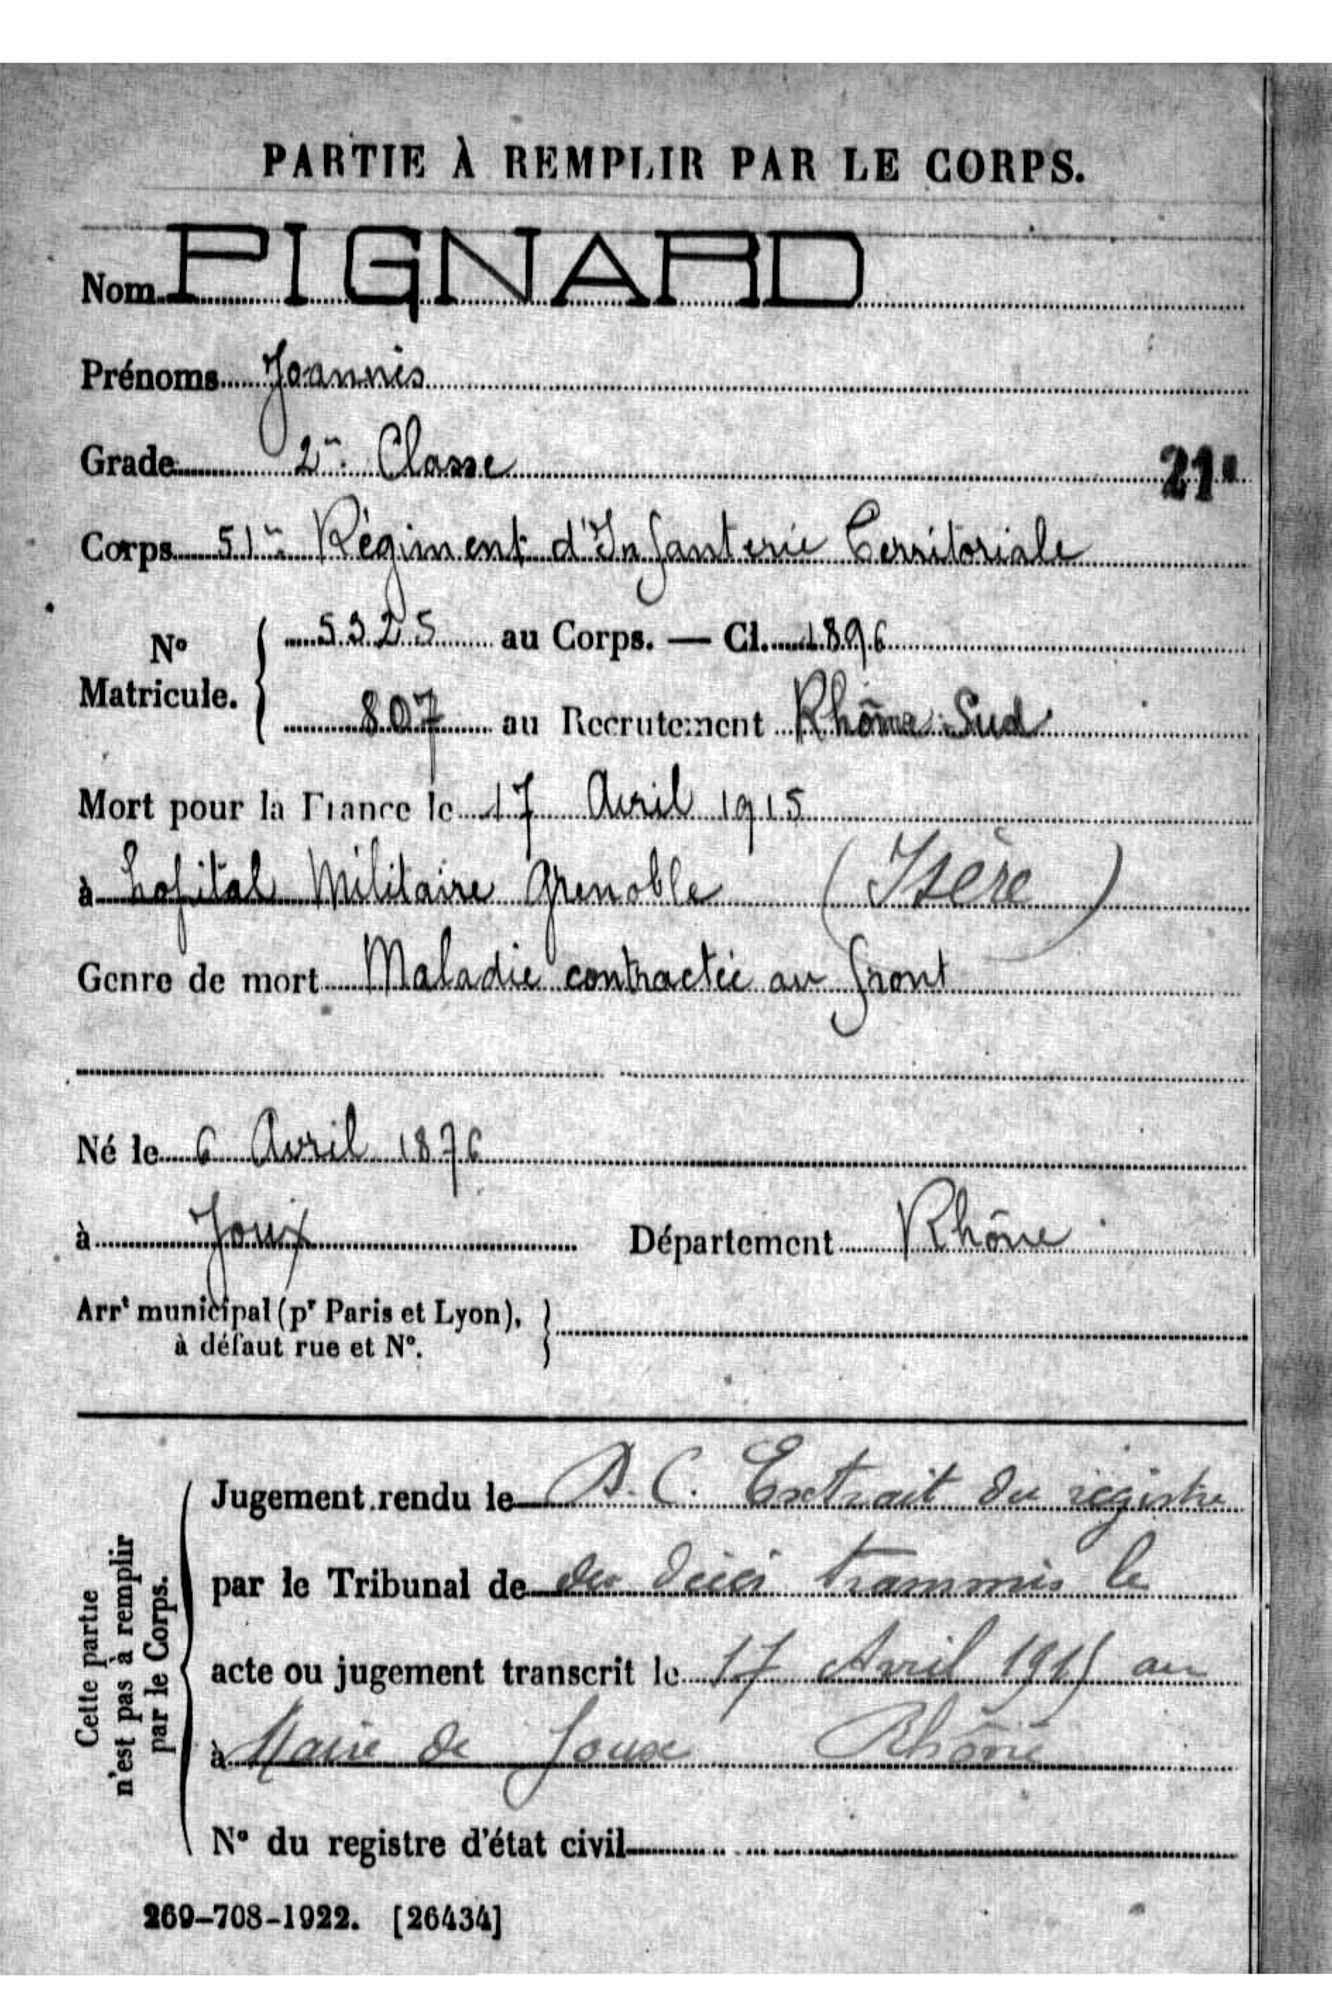 PARTIE À REMPLIR PAR LE CORPS.
Nom PIGNARD
Prénoms Joannis
Grade 2me Classe
21e
Corps 51me Régiment d'Infanterie Territoriale
No Matricule. { 5325 au Corps. — Cl. 1896
807 au Recrutement Rhône Sud
Mort pour la France le 17 Avril 1915
à hopital Militaire Grenoble (Isère)
Genre de mort Maladie contractée au front
Né le 6 Avril 1876
à Joux Département Rhône
Arrt municipal (pr Paris et Lyon),
à défaut rue et No.
Cette partie
n'est pas à remplir
par le Corps.
Jugement rendu le D.C. Extrait du registre
par le Tribunal de des décès transmis le
acte ou jugement transcrit le 17 Avril 1915 au
à Maire de Joux Rhône
No du registre d'état civil
269-708-1922. [26434]